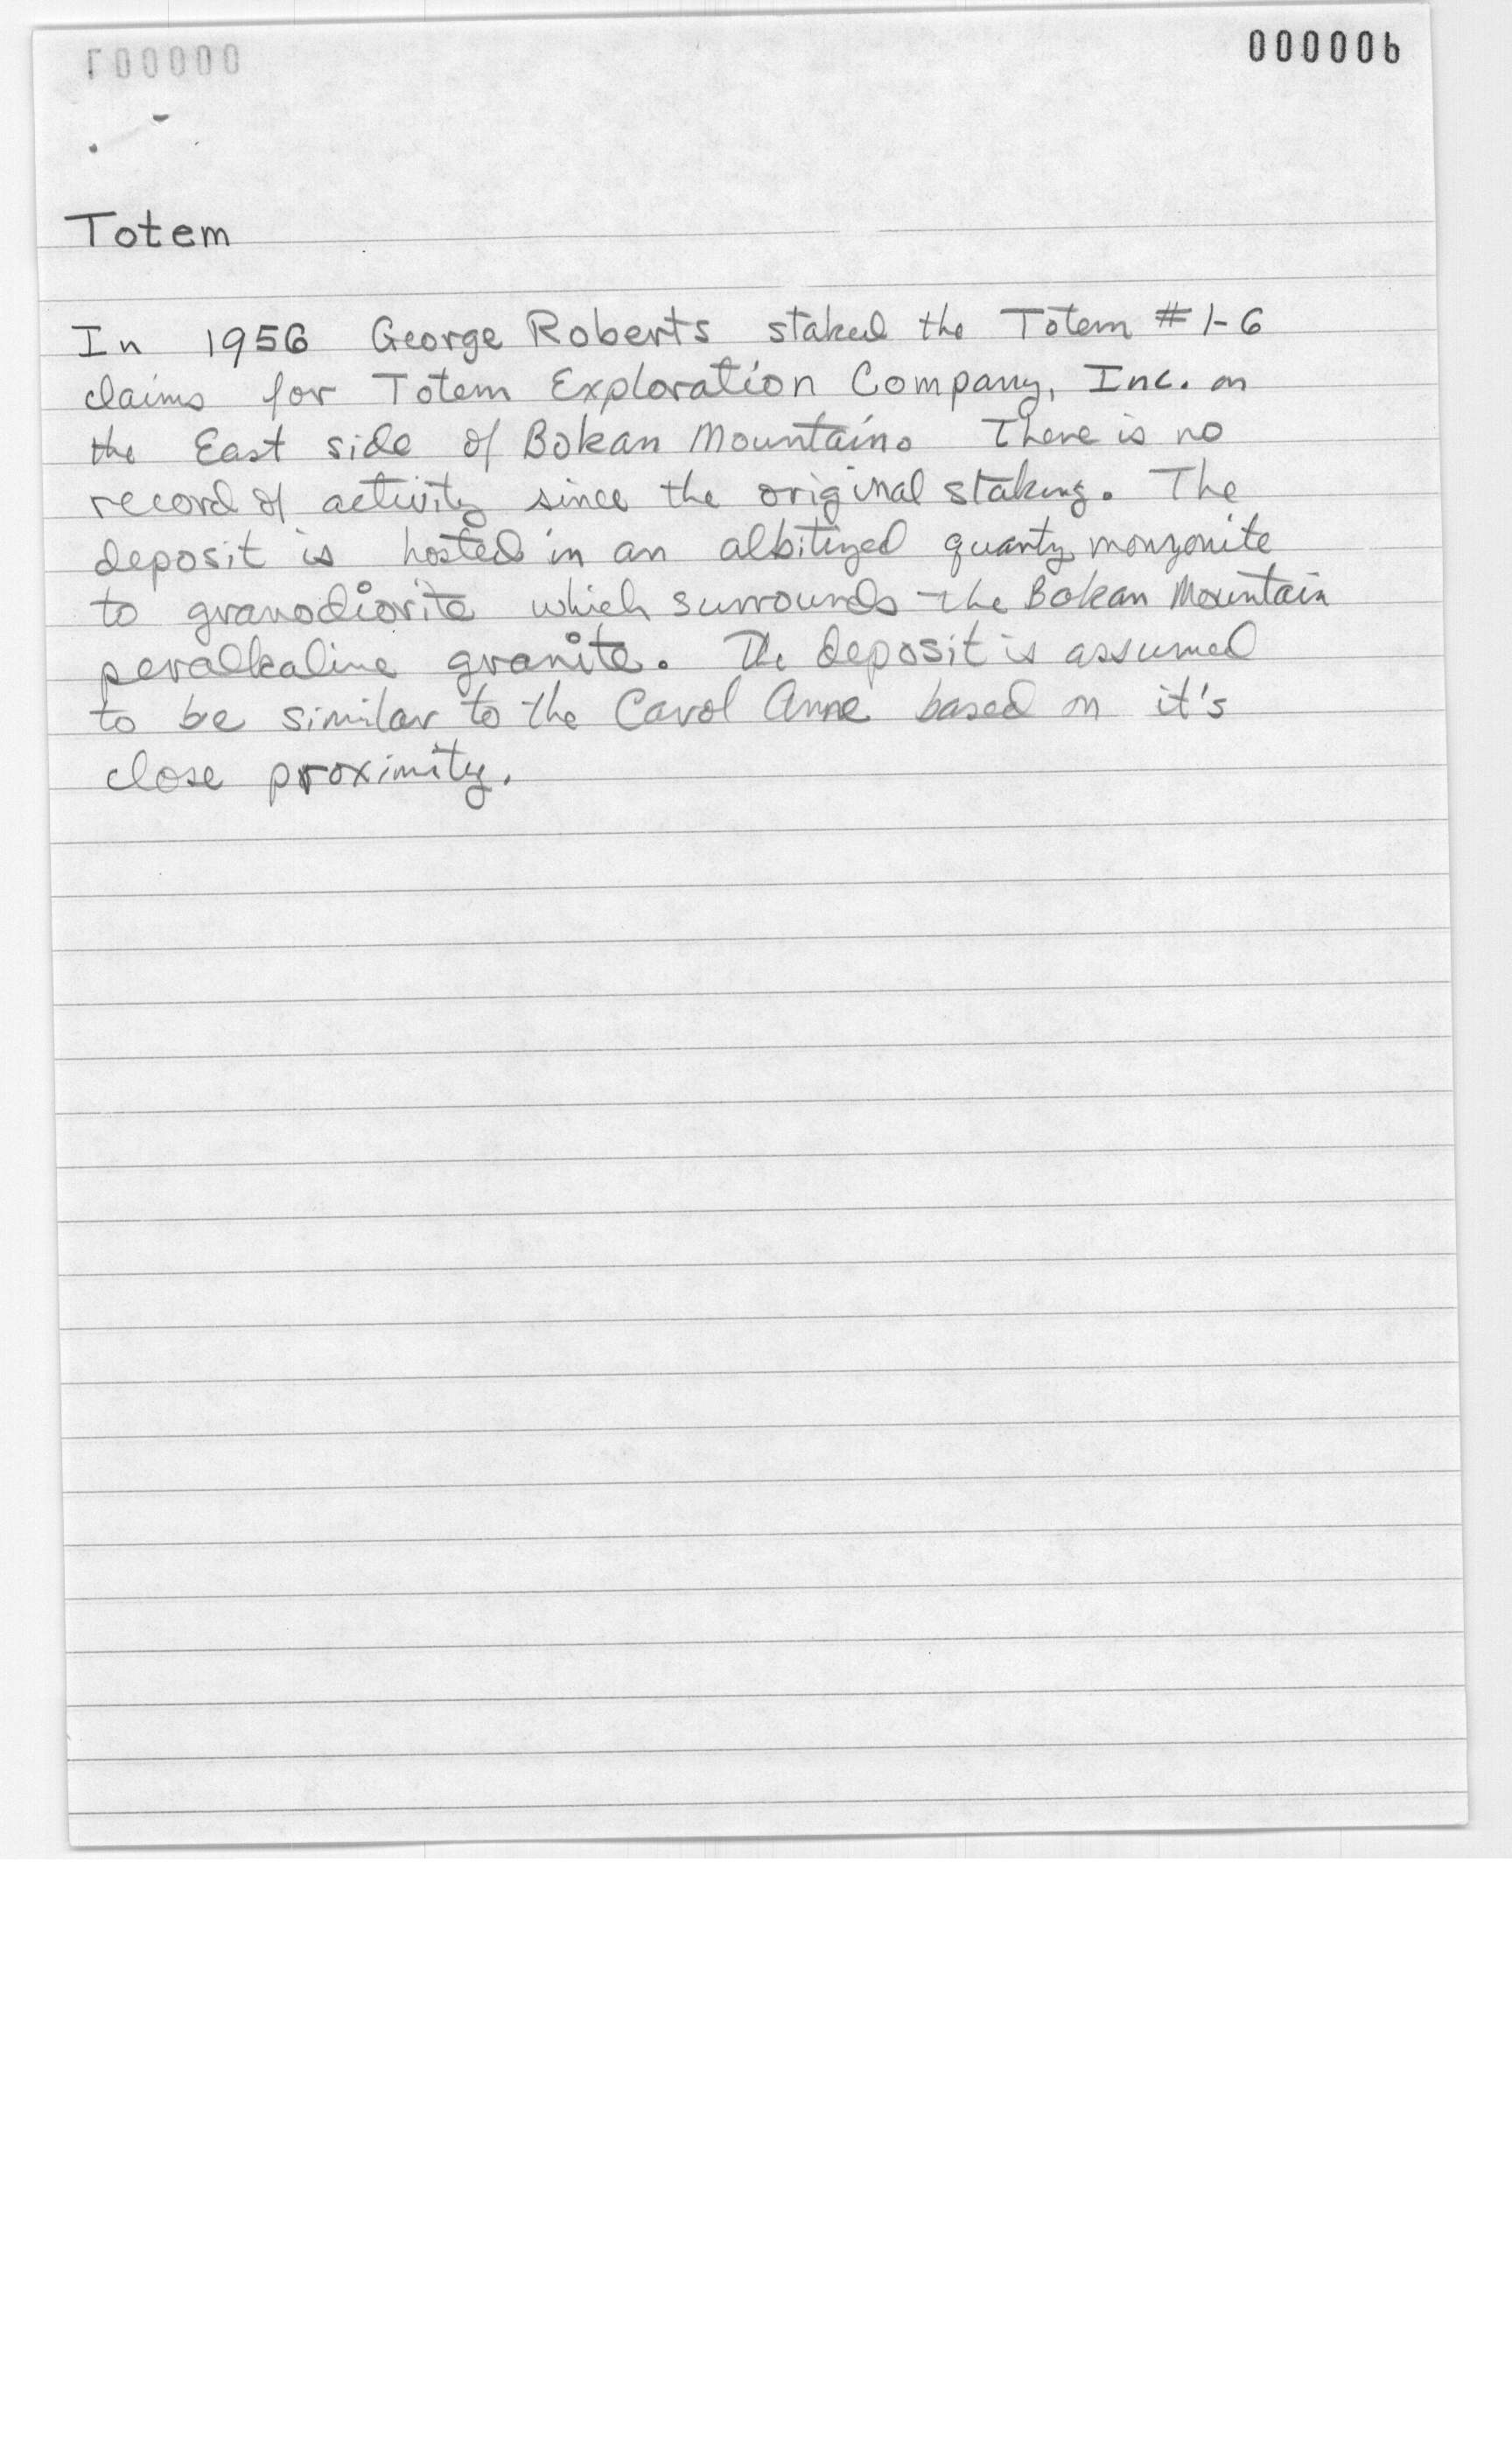 000006
Totem
In 1956 George Roberts staked the Totem #1-6
claims for Totem Exploration Company, Inc. on
the East side of Bokan Mountain. There is no
record of activity since the original staking. The
deposit is hosted in an albitized quartz monzonite
to granodiorite which surrounds the Bokan Mountain
peralkaline granite. The deposit is assumed
to be similar to the Carol Anne based on it's
close proximity.